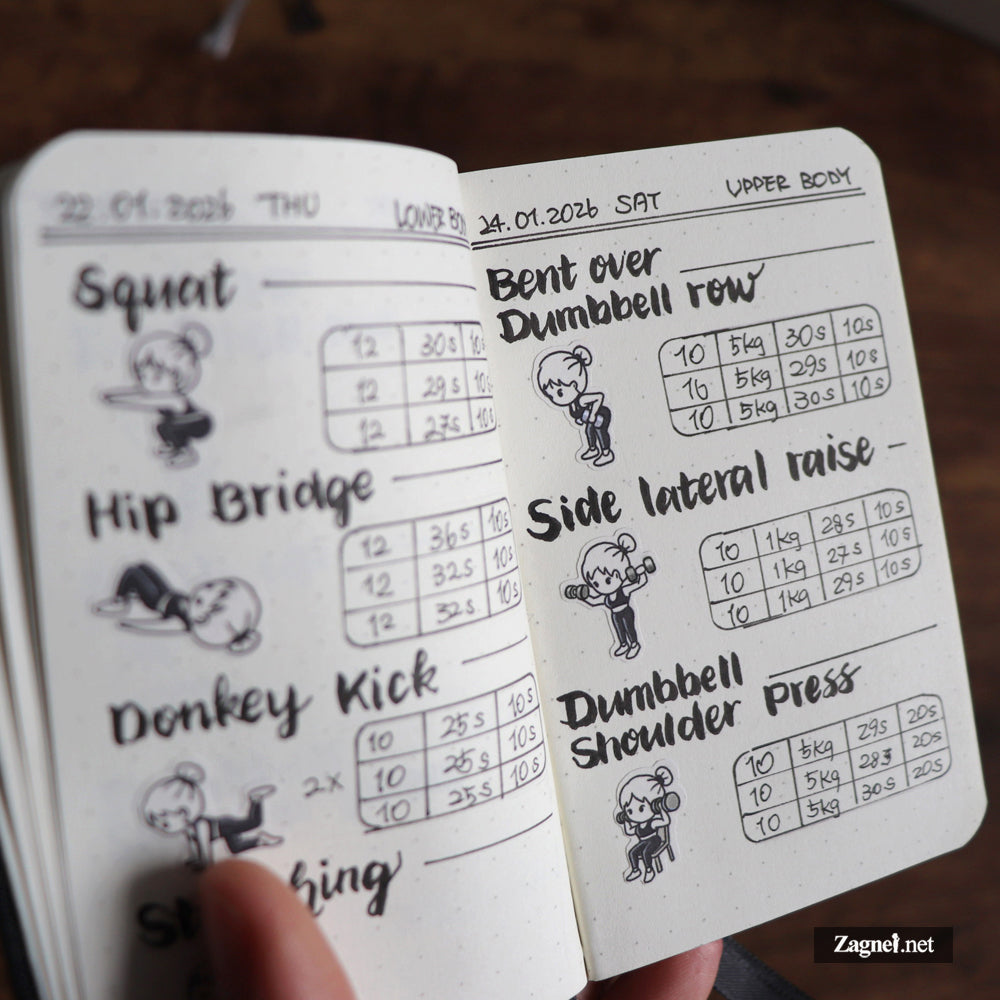 22.01.2026 THU LOWER BO
Squat
12 30s 10
12 29s 10
12 27s 10s
Hip Bridge
12 36s 10s
12 32s 10s
12 32s 10s
Donkey Kick
2x
10 25s 10s
10 25s 10s
10 25s 10s
24.01.2026 SAT UPPER BODY
Bent over
Dumbbell row
10 5kg 30s 10s
10 5kg 29s 10s
10 5kg 30s 10s
Side lateral raise
10 1kg 28s 10s
10 1kg 27s 10s
10 1kg 29s 10s
Dumbbell
Shoulder press
10 5kg 29s 20s
10 5kg 28s 20s
10 5kg 30s 20s
Zagnel.net